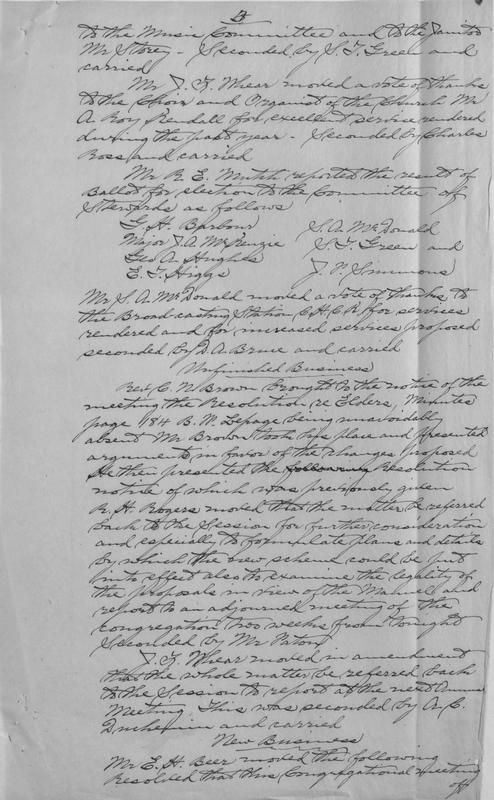 4
to the Music Committee and to the Janitor
Mr Storey - Seconded by S. T. Green and
carried
Mr J. F. Whear moved a vote of thanks
to the Choir and Organist of the Church Mr
A. Roy Kendall for excellent service rendered
during the past year - Seconded by Charles
Ross and carried
Mr R. E. Mutch reported the result of
Ballot for election to the Committee of
Stewards as follows
G. H. Barbour S. A. McDonald
Major J. A. McKenzie S. T. Green and
Geo A. Hughes
E. T. Higgs J. P. Simmons
Mr S. A. McDonald moved a vote of thanks to
the Broadcasting Station C.H.C.K. for services
rendered and for increased services proposed
seconded by D. A. Bruce and carried
Unfinished Business
Rev C. N. Brown brought to the notice of the
meeting the Resolution, re Elders, Minutes
page 184 B. W. Lepage being unavoidably
absent Mr Brown took his place and presented
arguments in favor of the changes proposed
He then presented the following Resolution
notice of which was previously given
R. H. Rogers moved that the matter be referred
back to the Session for further consideration
and especially to formulate plans and details
by which the new scheme could be put
into effect also to examine the legality of
the proposals in view of the Manuel and
report to an adjourned meeting of the
congregation two weeks from tonight
Seconded by Mr Paton
J. F. Whear moved in amendment
that the whole matter be referred back
to the Session to report at the next Annual
Meeting. This was seconded by A. C.
Duchemin and carried
New Business
Mr E. H. Beer moved the following
Resolved that this Congregational meeting
of